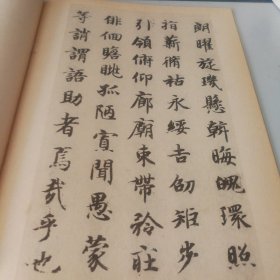 朗曜旋璣懸斡晦魄環照
指薪脩祜永綏吉劭矩步
引領俯仰廊廟束帶矜莊
俳佪瞻眺孤陋寡聞愚蒙
等誚謂語助者焉哉乎也